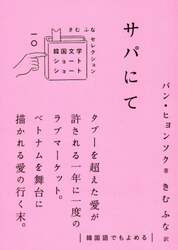 きむ ふな セレクション
韓国文学
ショート
ショート
一〇
サパにて
バン・ヒョンソク 著
きむ ふな 訳
タブーを超えた愛が
許される一年に一度の
ラブマーケット。
ベトナムを舞台に
描かれる愛の行く末。
韓国語でもよめる